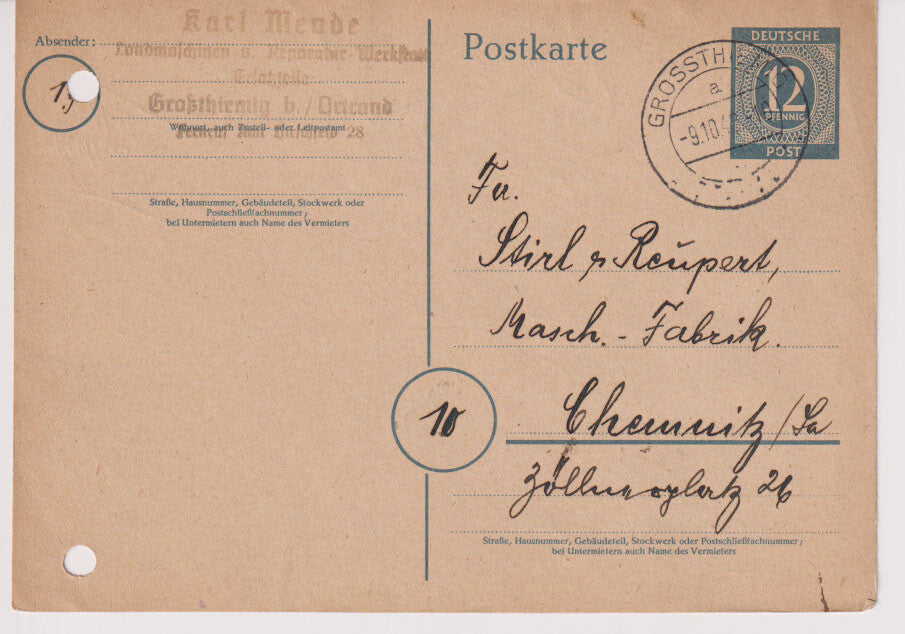 Absender:
Karl Mende
Landmaschinen u. Reparatur-Werkstatt
Großthiemig b./Ortrand
Wohnort, auch Zustell- oder Leitpostamt
28
Straße, Hausnummer, Gebäudeteil, Stockwerk oder
Postschließfachnummer;
bei Untermietern auch Name des Vermieters
Postkarte
DEUTSCHE
12
PFENNIG
POST
a
-9.10.
Fa.
Stirl & Reupert,
Masch.-Fabrik.
10
Chemnitz/Sa
Zöllnerplatz 26
Straße, Hausnummer, Gebäudeteil, Stockwerk oder Postschließfachnummer;
bei Untermietern auch Name des Vermieters